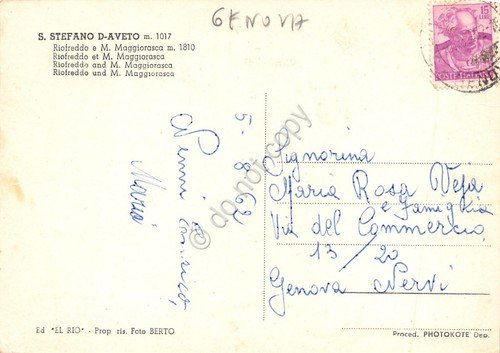 GENOVA
S. STEFANO D-AVETO m. 1017
Riofreddo e M. Maggiorasca m. 1810
Riofreddo et M. Maggiorasca
Riofreddo and M. Maggiorasca
Riofreddo und M. Maggiorasca
15 LIRE
POSTE ITALIANE
5-8-62
Maria
Signorina
Maria Rosa Veja
e Famiglia
Via del Commercio
13/20
Genova Nervi
do not copy
Ed "EL RIO" - Prop ris. Foto BERTO
Proced. PHOTOKOTE Dep.